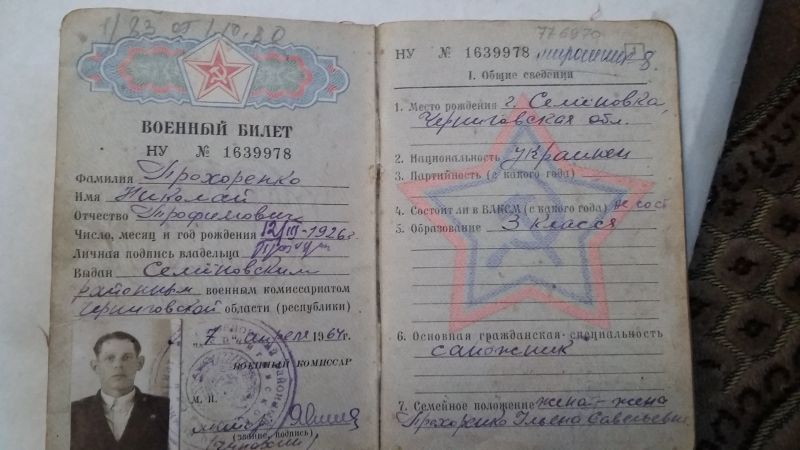 1/83 от 1.10.80
ВОЕННЫЙ БИЛЕТ
НУ № 1639978
Фамилия Прохоренко
Имя Николай
Отчество Трофимович
Число, месяц и год рождения 12/III-1926г.
Личная подпись владельца
Выдан Семёновским
районным военным комиссариатом
Черниговской области (республики)
„7“ апреля 1964г.
ВОЕННЫЙ КОМИССАР
М. П.
майор
(звание, подпись)
776970
НУ № 1639978
I. Общие сведения
1. Место рождения г. Семёновка,
Черниговская обл.
2. Национальность Украинец
3. Партийность (с какого года)
4. Состоит ли в ВЛКСМ (с какого года) не сост
5. Образование 3 класса
6. Основная гражданская специальность
сапожник
7. Семейное положение жена - жена
Прохоренко Ульяна Савельевна